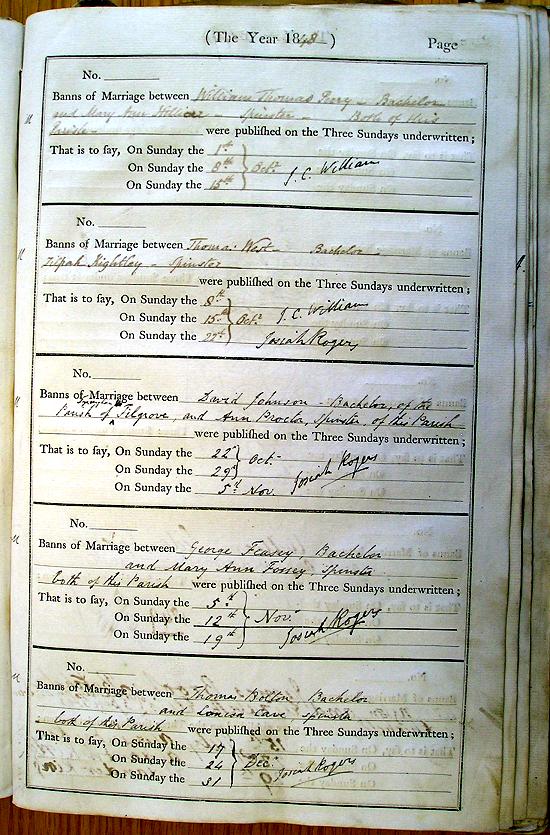 (The Year 1848)
Page
No.
Banns of Marriage between William Thomas Perry - Bachelor
and Mary Ann - Spinster - Both of this
Parish - were published on the Three Sundays underwritten;
That is to say, On Sunday the 1st
On Sunday the 8th Octr J. C. William
On Sunday the 15th
No.
Banns of Marriage between Thomas West - Bachelor
Zilpah Kightley - Spinster
were published on the Three Sundays underwritten;
That is to say, On Sunday the 8th
On Sunday the 15th Octr J. C. William
On Sunday the 22d Josiah Rogers
No.
Banns of Marriage between David Johnson - Bachelor, of the
Parish of Filgrove, and Ann Proctor, Spinster, of this Parish
were published on the Three Sundays underwritten;
That is to say, On Sunday the 22d
On Sunday the 29th Oct. Josiah Rogers
On Sunday the 5th Nov.
No.
Banns of Marriage between George Feasey Bachelor
and Mary Ann Fossey Spinster
both of this Parish were published on the Three Sundays underwritten;
That is to say, On Sunday the 5th
On Sunday the 12th Novr
On Sunday the 19th Josiah Rogers
No.
Banns of Marriage between Thomas Bolton Bachelor
and Louisa Cave Spinster
both of this Parish were published on the Three Sundays underwritten;
That is to say, On Sunday the 17
On Sunday the 24 Decr Josiah Rogers
On Sunday the 31